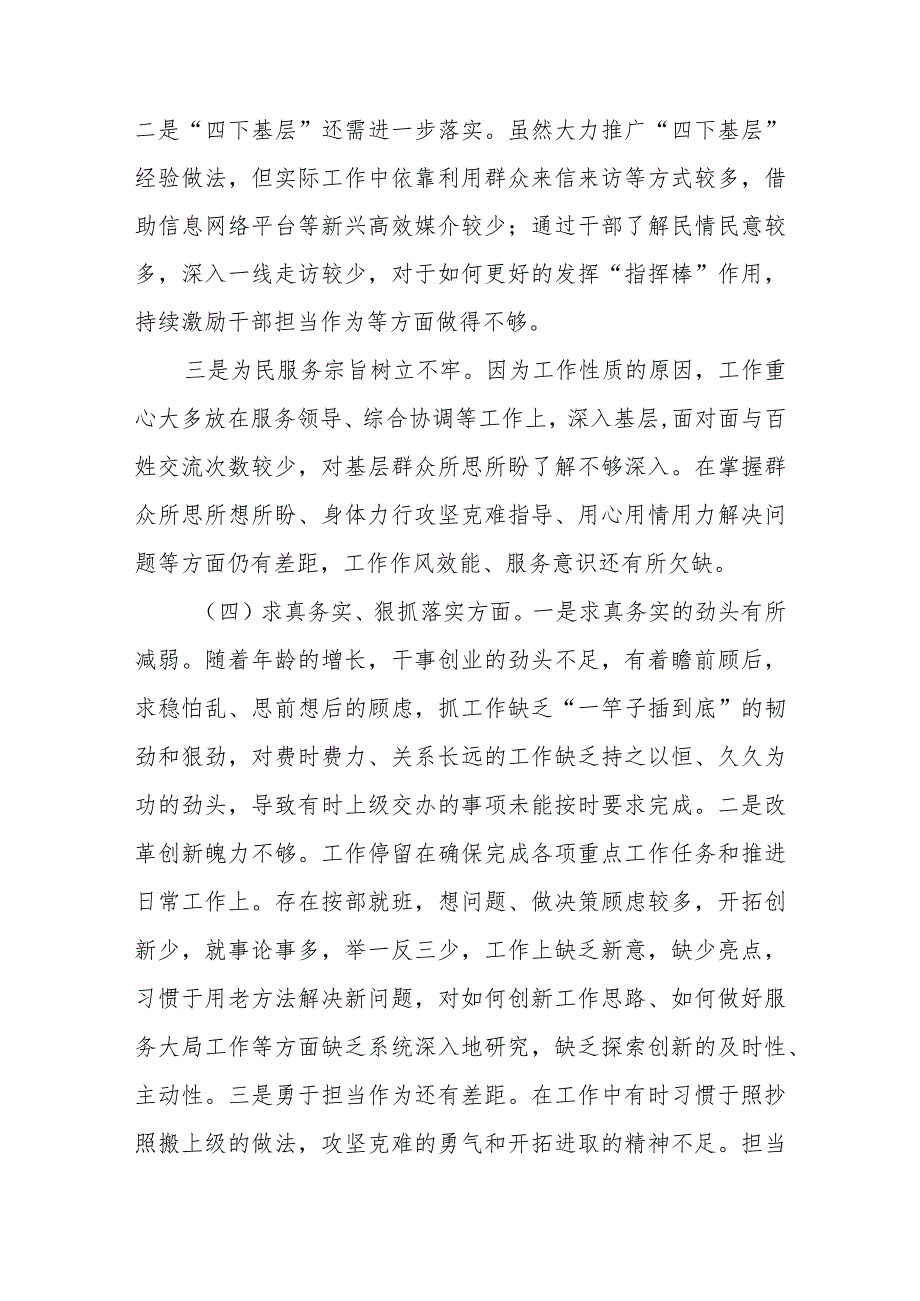 二是“四下基层”还需进一步落实。虽然大力推广“四下基层”
经验做法，但实际工作中依靠利用群众来信来访等方式较多，借
助信息网络平台等新兴高效媒介较少；通过干部了解民情民意较
多，深入一线走访较少，对于如何更好的发挥“指挥棒”作用，
持续激励干部担当作为等方面做得不够。
三是为民服务宗旨树立不牢。因为工作性质的原因，工作重
心大多放在服务领导、综合协调等工作上，深入基层,面对面与百
姓交流次数较少，对基层群众所思所盼了解不够深入。在掌握群
众所思所想所盼、身体力行攻坚克难指导、用心用情用力解决问
题等方面仍有差距，工作作风效能、服务意识还有所欠缺。
（四）求真务实、狠抓落实方面。一是求真务实的劲头有所
减弱。随着年龄的增长，干事创业的劲头不足，有着瞻前顾后，
求稳怕乱、思前想后的顾虑，抓工作缺乏“一竿子插到底”的韧
劲和狠劲，对费时费力、关系长远的工作缺乏持之以恒、久久为
功的劲头，导致有时上级交办的事项未能按时要求完成。二是改
革创新魄力不够。工作停留在确保完成各项重点工作任务和推进
日常工作上。存在按部就班，想问题、做决策顾虑较多，开拓创
新少，就事论事多，举一反三少，工作上缺乏新意，缺少亮点，
习惯于用老方法解决新问题，对如何创新工作思路、如何做好服
务大局工作等方面缺乏系统深入地研究，缺乏探索创新的及时性、
主动性。三是勇于担当作为还有差距。在工作中有时习惯于照抄
照搬上级的做法，攻坚克难的勇气和开拓进取的精神不足。担当